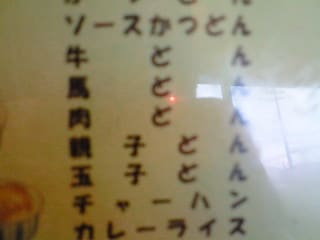 ソースかつどん
牛どん
馬どん
肉どん
親子どん
玉子どん
チャーハン
カレーライス